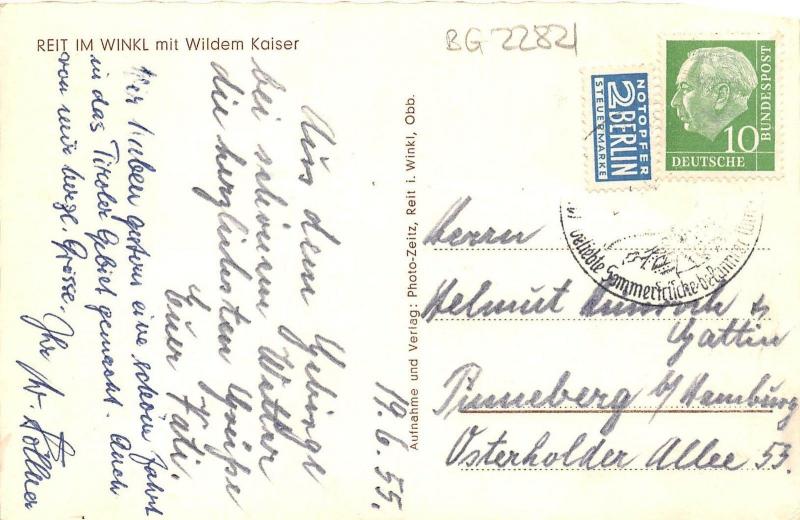 REIT IM WINKL mit Wildem Kaiser
BG-22821
Aus dem Gebirge
bei schönem Wetter
die herzlichsten Grüße
Euer Vati.
19.6.55.
Wir haben gestern eine schöne Fahrt
in das Tiroler Gebiet gemacht. Auch
von mir herzl. Grüsse. Ihr
Aufnahme und Verlag: Photo-Zeitz, Reit i. Winkl, Obb.
NOTOPFER
2 BERLIN
STEUERMARKE
10
DEUTSCHE
BUNDESPOST
beliebte Sommerfrische
Herrn
Helmut &
Gattin
Pinneberg b/Hamburg
Osterholder Allee 53.